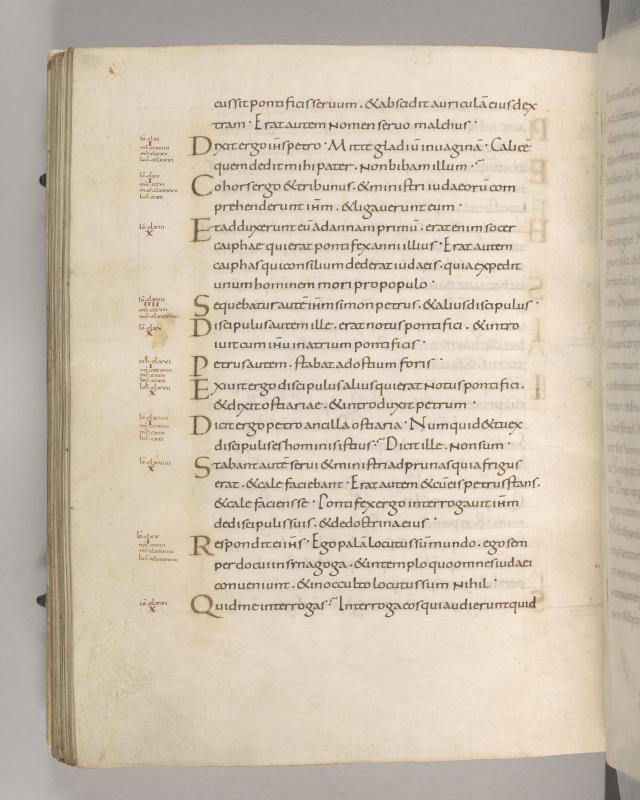 cussit pontificis seruum. & abscidit auriculā eius dex
tram. Erat autem nomen seruo malchus.
Dixit ergo ih̄s petro. Mitte gladiū in uaginā. Calicē
quem dedit mihi pater. Non bibam illum.
Cohors ergo & tribunus. & ministri iudaeorū com
prehenderunt ih̄m. & ligauerunt eum.
Et adduxerunt eū ad annam primū. erat enim socer
caiphae qui erat pontifex anni illius. Erat autem
caiphas qui consilium dederat iudaeis. quia expedit
unum hominem mori pro populo.
Sequebatur autē ih̄m simon petrus. & alius discipulus.
Discipulus autem ille. erat notus pontifici. & intro
iuit cum ih̄u in atrium pontificis.
Petrus autem. stabat ad ostium foris.
Exiuit ergo discipulus alius qui erat notus pontifici.
& dixit ostiariae. & introduxit petrum.
Dicit ergo petro ancilla ostiaria. Numquid & tu ex
discipulis es hominis istius. Dicit ille. Non sum.
Stabant autē serui & ministri ad prunas quia frigus
erat. & calefaciebant. Erat autem & cū eis petrus stans.
& calefaciens se. Pontifex ergo interrogauit ih̄m
de discipulis suis. & de doctrina eius.
Respondit ei ih̄s. Ego palā locutus sū mundo. ego sem
per docui in sinagoga. & in templo quo omnes iudaei
conueniunt. & in occulto locutus sum nihil.
Quid me interrogas. Interroga eos qui audierunt quid